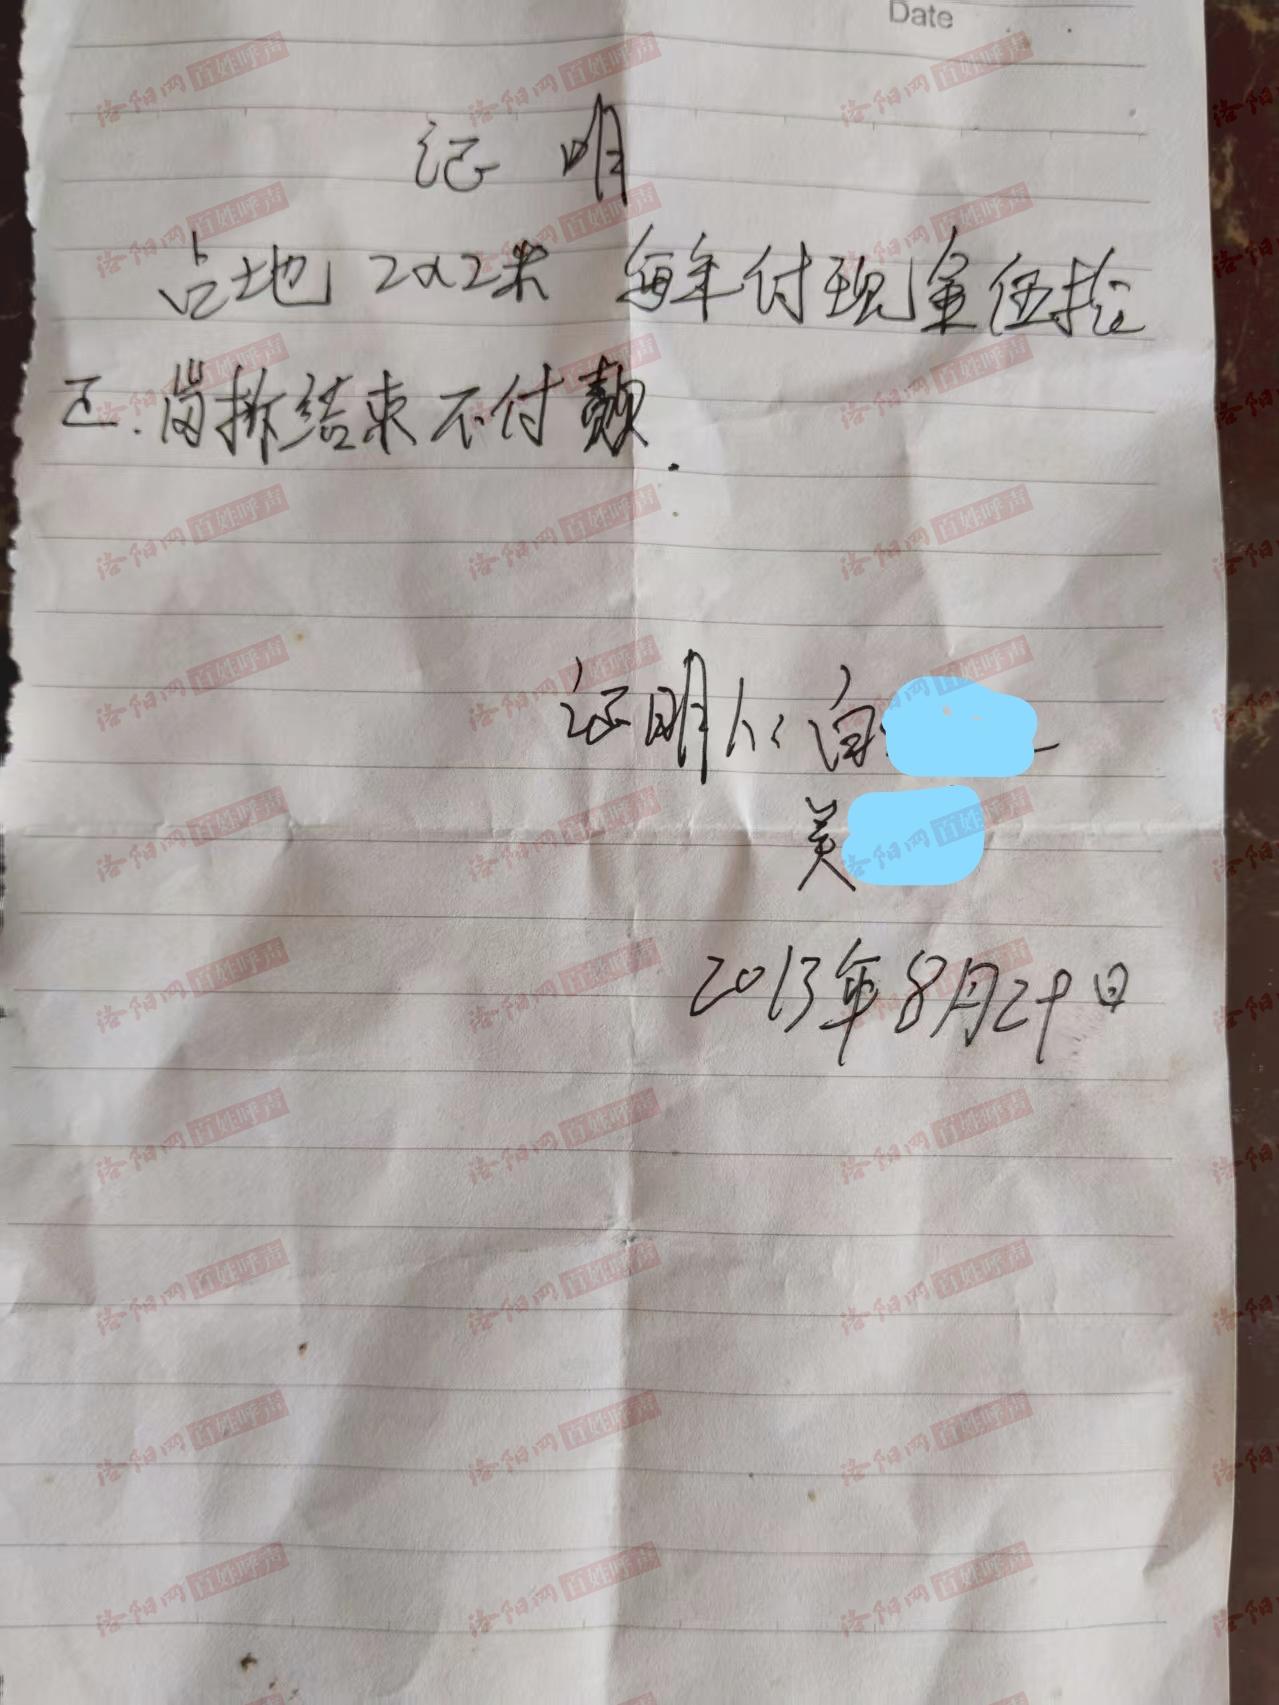 Date
证明
占地 2x2米 每年付现金伍拾
正.岗拆结束不付款.
证明人 白
美
2013年8月29日
洛阳网 百姓呼声